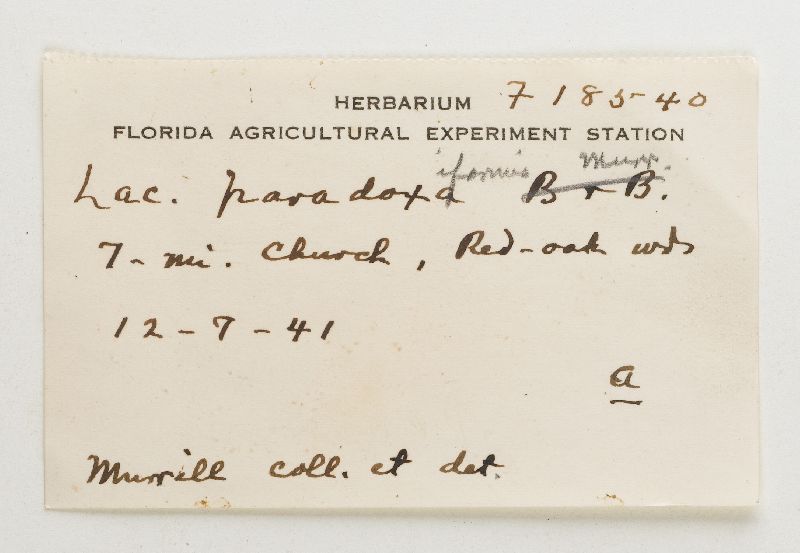 HERBARIUM 7 18540
FLORIDA AGRICULTURAL EXPERIMENT STATION
iformis Murr.
Lac. paradoxa B & B.
7-mi. Church, Red-oak wds
12-7-41
a
Murrill coll. et det.